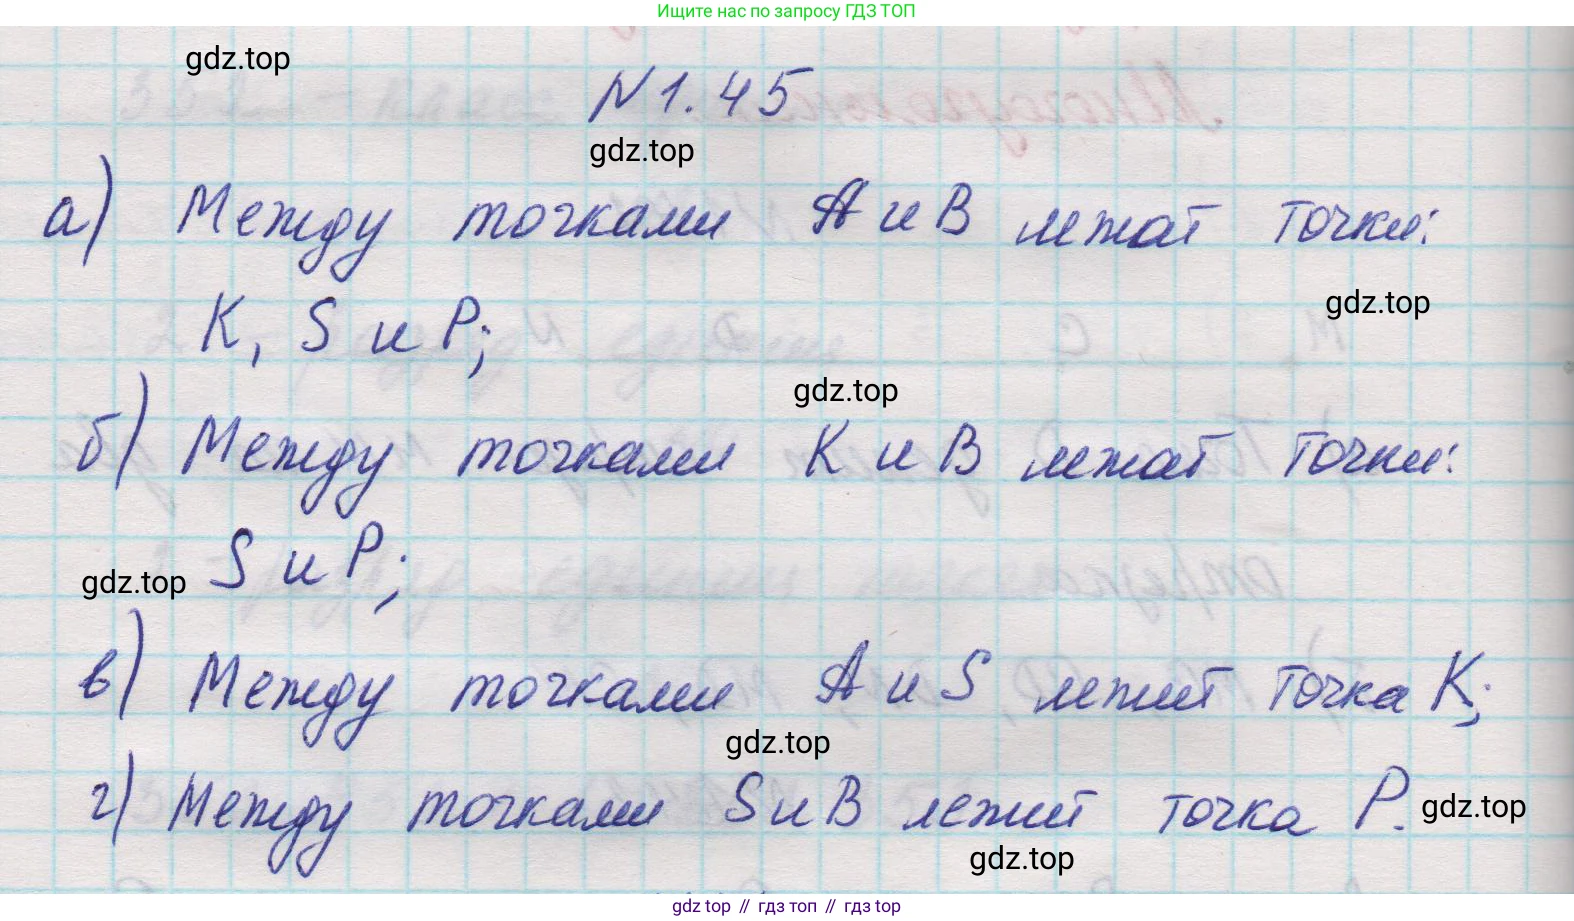 Ищите нас по запросу ГДЗ ТОП
gdz.top
N 1.45
gdz.top
а) Между точками А и В лежат точки:
gdz.top
K, S и P;
gdz.top
б) Между точками К и В лежат точки:
S и P;
gdz.top
в) Между точками А и S лежит точка К;
gdz.top
г) Между точками S и В лежит точка Р.
gdz.top
gdz.top
gdz top // гдз топ // gdz top